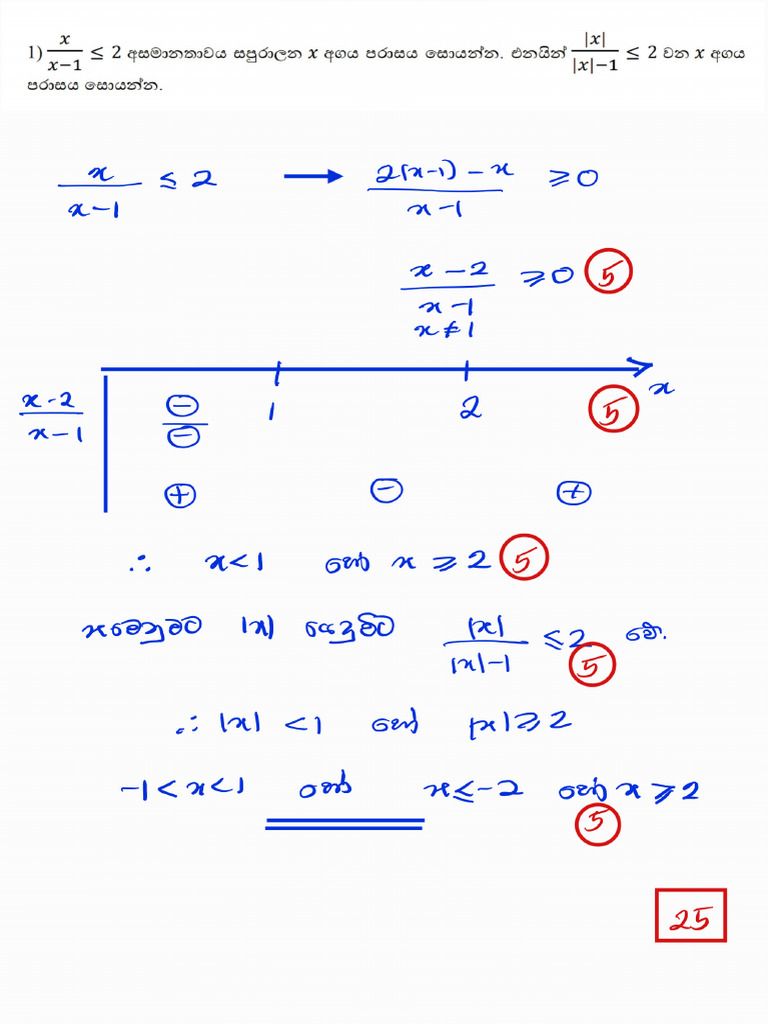 1) x/(x−1) ≤ 2 අසමානතාවය සපුරාලන x අගය පරාසය සොයන්න. එනයින් |x|/(|x|−1) ≤ 2 වන x අගය
පරාසය සොයන්න.
x/(x−1) ≤ 2 → (2(x−1) − x)/(x−1) ≥ 0
(x−2)/(x−1) ≥ 0 5
x ≠ 1
x
(x−2)/(x−1) ⊖/⊖ 1 2 5
⊕ ⊖ ⊕
∴ x < 1 හෝ x ≥ 2 5
x මෙනුවට |x| යෙදුවිට |x|/(|x|−1) ≤ 2 වේ. 5
∴ |x| < 1 හෝ |x| ≥ 2
−1 < x < 1 හෝ x ≤ −2 හෝ x ≥ 2
5
25